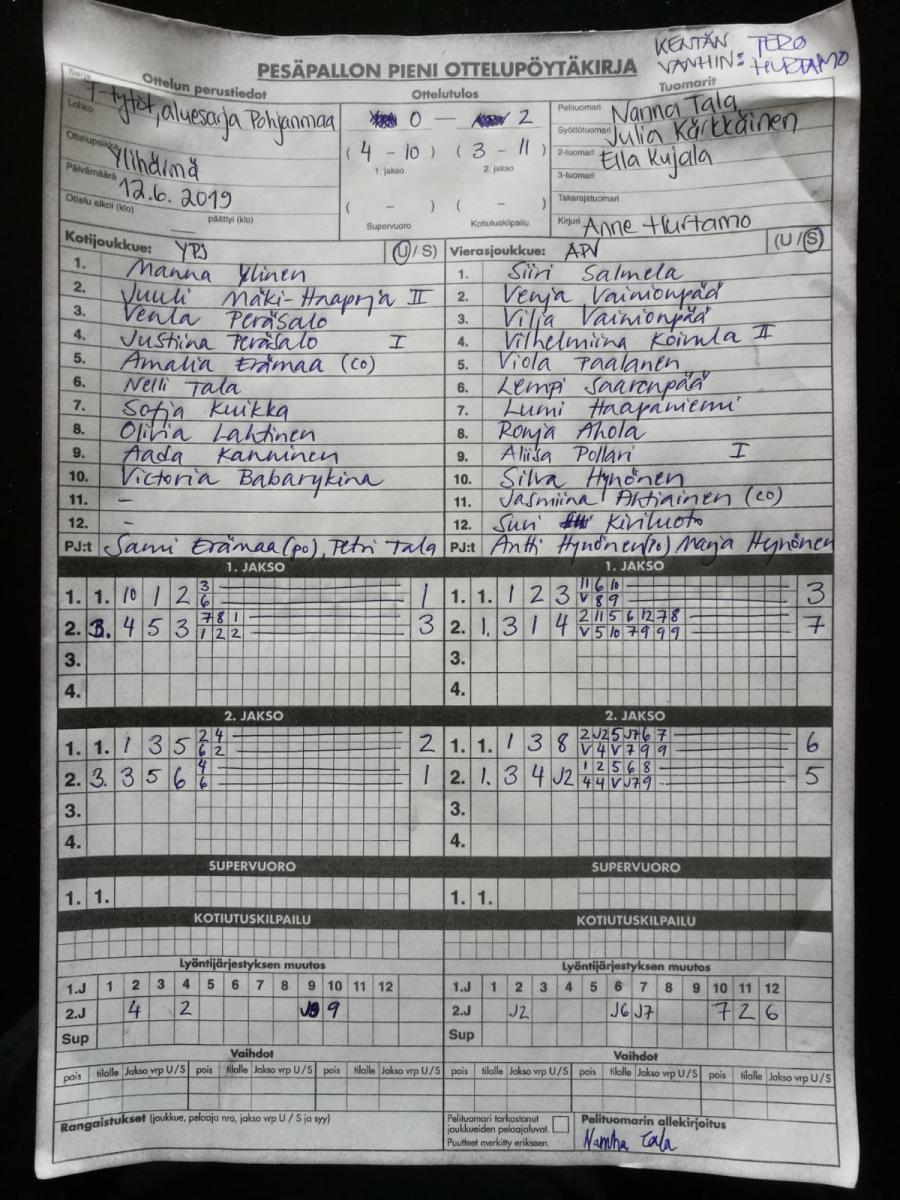 KENTÄN VANHIN: TERO HURTAMO
PESÄPALLON PIENI OTTELUPÖYTÄKIRJA
Sarja
Ottelun perustiedot
Ottelutulos
Tuomarit
T-tytöt, aluesarja Pohjanmaa
Lohko
0 — 2
Pelituomari Nanna Tala
Syöttötuomari Julia Kärkkäinen
Ottelupaikka Ylihärmä
( 4 - 10 ) ( 3 - 11 )
1. jakso 2. jakso
2-tuomari Ella Kujala
3-tuomari
Päivämäärä 12.6. 2019
Takarajatuomari
Ottelu alkoi (klo) päättyi (klo)
( - ) ( - )
Supervuoro Kotiutuskilpailu
Kirjuri Anne Hurtamo
Kotijoukkue: YPJ (U / S)
Vierasjoukkue: APV (U / S)
1. Manna Ylinen
2. Juuli Mäki-Haapoja II
3. Venla Peräsalo
4. Justiina Peräsalo I
5. Amalia Erämaa (co)
6. Nelli Tala
7. Sofja Kuikka
8. Olivia Lahtinen
9. Aada Kanninen
10. Victoria Babarykina
11. -
12. -
PJ:t Sami Erämaa (po), Petri Tala
1. Siiri Salmela
2. Venja Vainionpää
3. Vilja Vainionpää
4. Vilhelmiina Koivula II
5. Viola Paalanen
6. Lempi Saarenpää
7. Lumi Haapaniemi
8. Ronja Ahola
9. Aliisa Pollari I
10. Silva Hynönen
11. Jasmiina Ahtiainen (co)
12. Suri Kiviluoto
PJ:t Antti Hynönen (po) Marja Hynönen
1. JAKSO
1. 1. 10 1 2 3 1
6
2. 3. 4 5 3 7 8 1 3
1 2 2
3.
4.
1. JAKSO
1. 1. 1 2 3 11 6 10 3
V 8 9
2. 1. 3 1 4 2 11 5 6 12 7 8 7
V 5 10 7 9 9 9
3.
4.
2. JAKSO
1. 1. 1 3 5 2 4 2
6 2
2. 3. 3 5 6 4 1
6
3.
4.
2. JAKSO
1. 1. 1 3 8 2 J2 5 J7 6 7 6
V 4 V 7 9 9
2. 1. 3 4 J2 1 2 5 6 8 5
4 4 V J7 9
3.
4.
SUPERVUORO
1. 1.
SUPERVUORO
1. 1.
KOTIUTUSKILPAILU
KOTIUTUSKILPAILU
Lyöntijärjestyksen muutos
1.J 1 2 3 4 5 6 7 8 9 10 11 12
2.J 4 2 9
Sup
Lyöntijärjestyksen muutos
1.J 1 2 3 4 5 6 7 8 9 10 11 12
2.J J2 J6 J7 7 2 6
Sup
Vaihdot
pois tilalle Jakso vrp U/S pois tilalle Jakso vrp U/S pois tilalle Jakso vrp U/S
Vaihdot
pois tilalle Jakso vrp U/S pois tilalle Jakso vrp U/S pois tilalle Jakso vrp U/S
Rangaistukset (joukkue, pelaaja nro, jakso vrp U / S ja syy)
Pelituomari tarkastanut
joukkueiden pelaajaluvat.
Puutteet merkitty erikseen.
Pelituomarin allekirjoitus
Nanna Tala